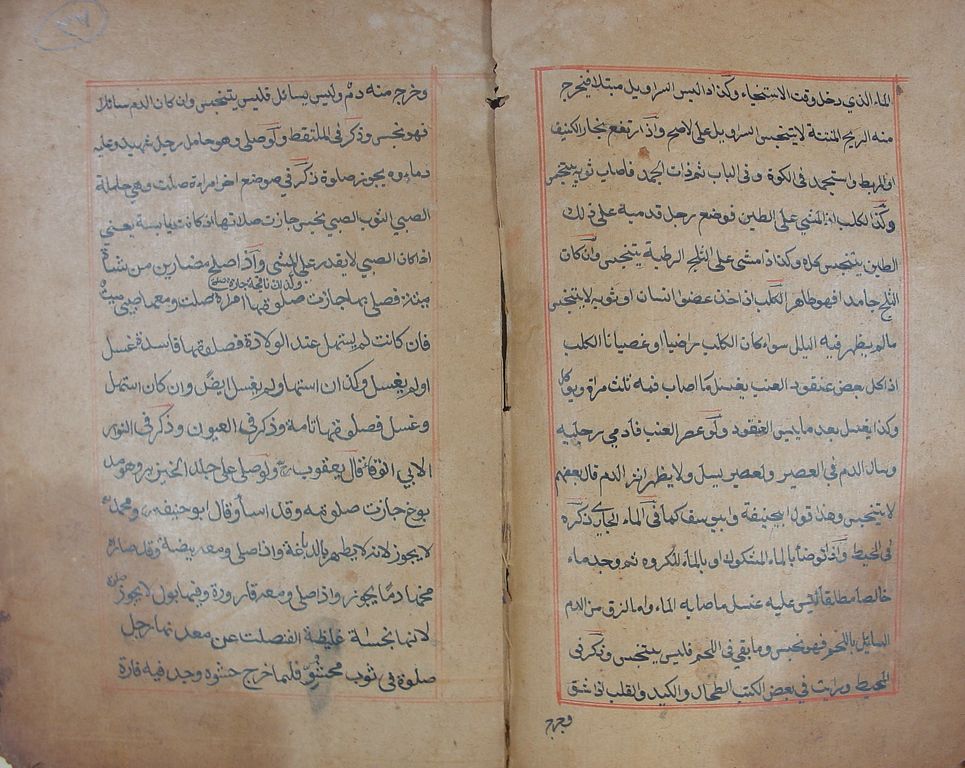 الماء الذي دخل وقت الاستنجاء وكذا اذا لبس السراويل مبتلا فيخرج
منه الريح المنتنة لا يتنجس السراويل على الاصح واذا ارتفع بخار الكنيف
او المربط واستجمد في الكوة وفي الباب ثم ذاب الجمد فاصاب ثوبه يتنجس
وكذا الكلب اذا مشي على الطين فوضع رجل قدميه على ذلك
الطين يتنجس كله وكذا اذا مشى على الثلج الرطبة يتنجس وان كان
الثلج جامدا فهو طاهر الكلب اذا اخذ عضو انسان او ثوبه لا يتنجس
مالم يظهر فيه البلل سواء كان الكلب راضيا او غضبانا الكلب
اذا اكل بعض عنقود العنب يغسل ما اصاب فمه ثلث مرة ويؤكل
وكذا يغسل بعد ما يبس العنقود ولو عصر العنب فادمي رجليه
وسال الدم في العصير والعصير يسيل ولا يظهر اثر الدم قال بعضهم
لا يتنجس وهذا قول ابيحنيفة وابيوسف كما في الماء الجاري ذكره
في المحيط واذا توضأ بالماء المشكوك او بالماء المكروه ثم وجد ماء
خالصا مطلقا ليس عليه غسل ما اصابه الماء واما لزق من الدم
السائل باللحم فهو نجس وما بقي في اللحم فليس يتنجس وذكر في
المحيط ورايت في بعض الكتب الطحال والكبد والقلب اذا شق
وخرج
وخرج منه دم وليس بسائل فليس يتنجس وان كان الدم سائلا
فهو نجس وذكر في الملتقط ولو صلى وهو حامل رجل شهيد وعليه
دماءوه يجوز صلوة ذكر في موضع اخر امراءة صلت وهي حاملة
الصبي الثوب الصبي نجس جازت صلاتها ان كانت يابسة يعني
اذا كان الصبي لا يقدر على المشي واذا اصلح مضارين من شاة
ميتة فصلي بها جازت صلوتها امراة صلت ومعها صبي ميت
فان كانت لم يستهل عند الولادة فصلوتها فاسدة غسل
اولم يغسل وكذا ان استهل ولم يغسل ايض وان كان استهل
وغسل فصلوتها تامة وذكر في العيون وذكر في النوادر
قال يعقوب ولو صلى على جلد الخنزير وهو مد
بوغ جازت صلوته وقد اسأ وقال ابو حنيفة ومحمد
لا يجوز لانه لا يطهر بالدباغة واذا صلى ومعه بيضة وقد صار
محها دما يجوز واذا صلى ومعه قارورة وفيها بول لا يجوز صلوته
لانها نجاسة غليظة انفصلت عن معدنها رجل
صلوة في ثوب محشو فلما اخرج حشوه وجد فيه فارة